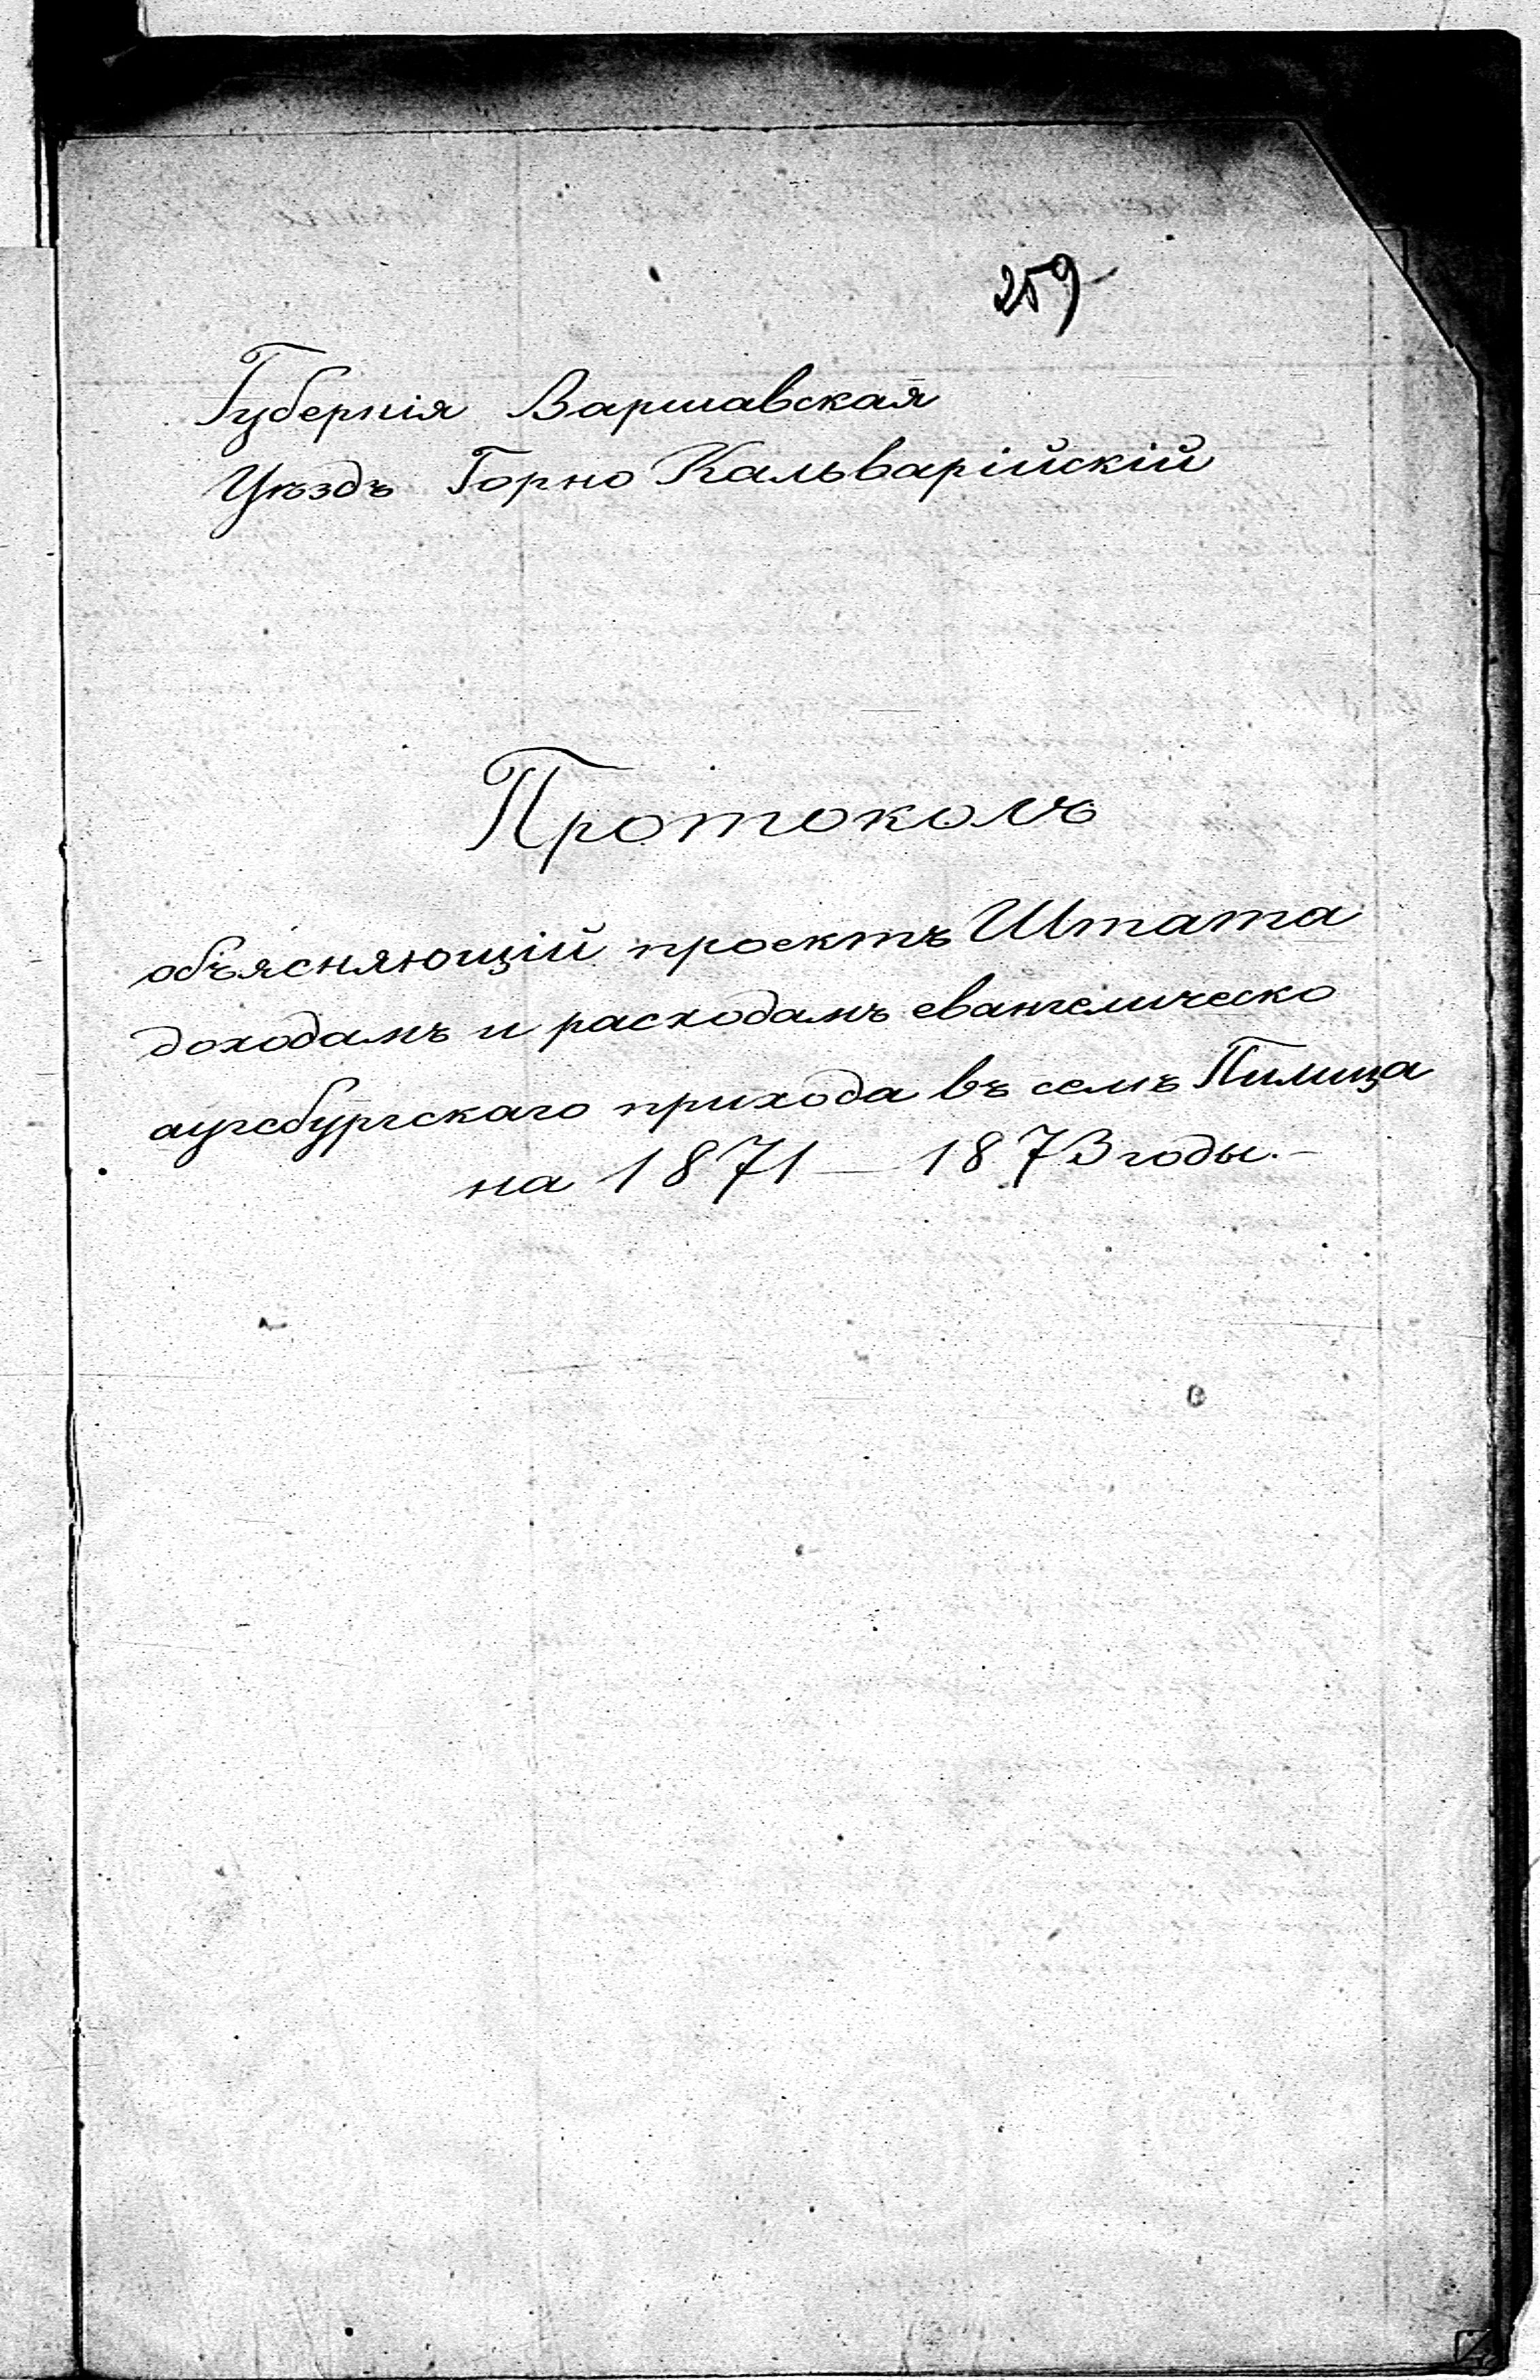 259
Губернія Варшавская
Уѣздъ Горно Кальварійскій
Протоколъ
объясняющій проектъ Штата
доходамъ и расходамъ евангелическо
аугсбургскаго прихода въ селѣ Пилица
на 1871 — 1873 годы.—